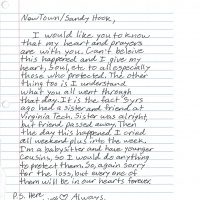 NewTown/Sandy Hook,
I would like you to know
that my heart and prayers
are with you. Can't beleive
this happened and I give my
heart, Soul, etc to all especially
those who protected. The other
thing too is I understand
what you all went through
that day. It is the fact 5yrs
ago had a sister and friend at
Virginia Tech. Sister was alright,
but friend passed away. Then
the day this happened I cried
all weekend plus into the week.
I'm a babysitter and have younger
Cousins, so I would do anything
to protect them. So, again sorry
for the loss, but every one of
them will be in our hearts forever.
P.S. Here
Always,